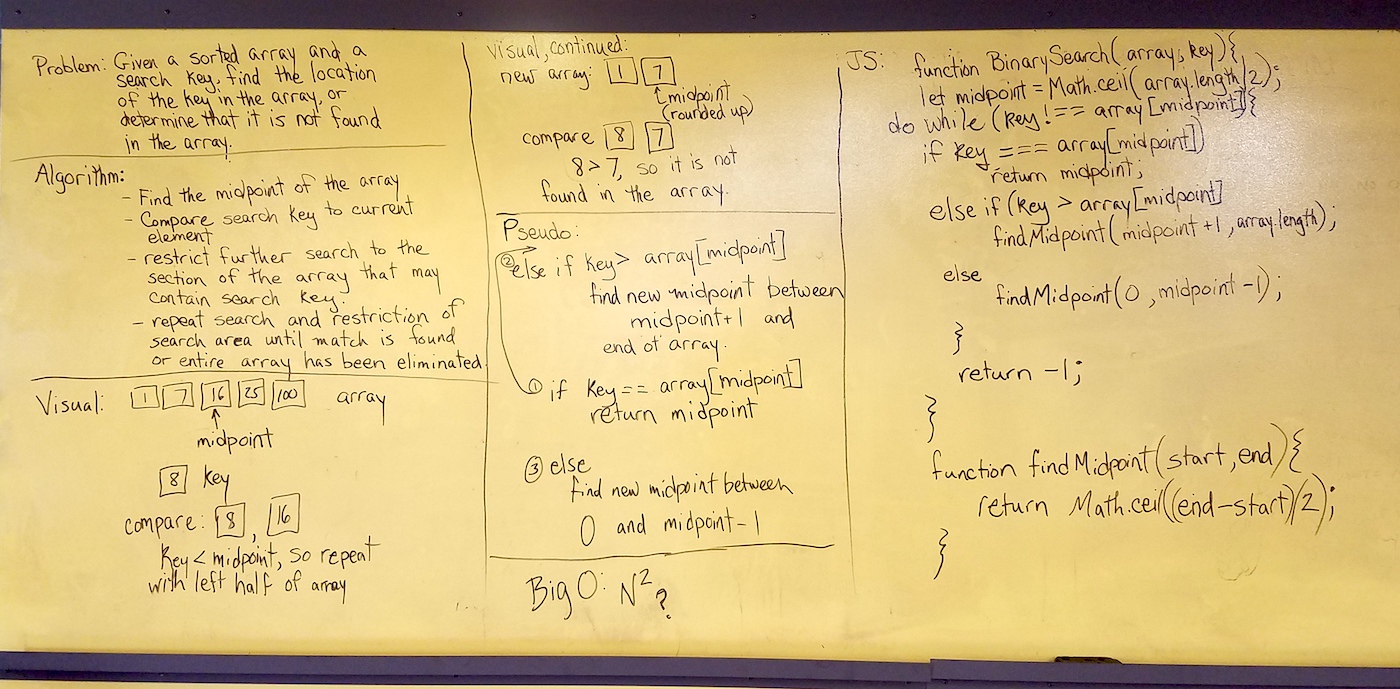 Problem: Given a sorted array and a
search key, find the location
of the key in the array, or
determine that it is not found
in the array.
Algorithm:
- Find the midpoint of the array
- Compare search key to current
element
- restrict further search to the
section of the array that may
contain search key.
- repeat search and restriction of
search area until match is found
or entire array has been eliminated.
Visual: 1 7 16 25 100 array
↑
midpoint
8 key
compare: 8, 16
Key < midpoint, so repeat
with left half of array
Visual, continued:
new array: 1 7
↑ midpoint
(rounded up)
compare 8 7
8>7, so it is not
found in the array.
Pseudo:
② else if key> array[midpoint]
find new midpoint between
midpoint+1 and
end of array.
① if key == array[midpoint]
return midpoint
③ else
find new midpoint between
0 and midpoint-1
Big O: N²?
JS: function BinarySearch(array, key){
let midpoint = Math.ceil(array.length/2);
do while (key !== array[midpoint]){
if key === array[midpoint])
return midpoint;
else if (key > array[midpoint]
findMidpoint(midpoint+1, array.length);
else
findMidpoint(0, midpoint-1);
}
return -1;
}
function findMidpoint(start, end){
return Math.ceil((end-start)/2);
}